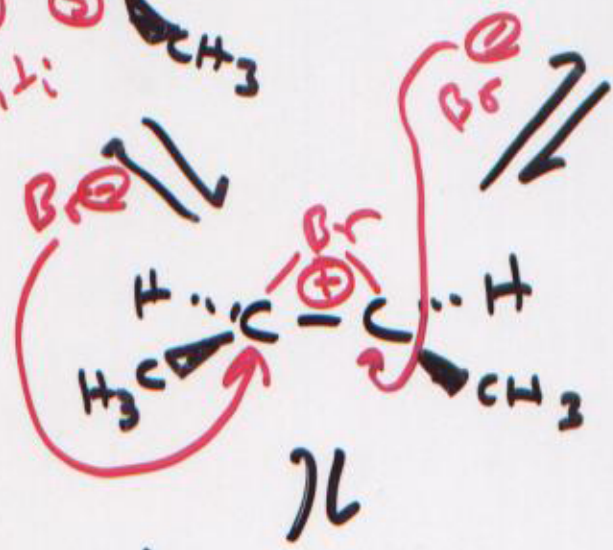 ⊖
CH3
⊖
Br
Br⊖
Br
⊕
H C — C H
H3C CH3